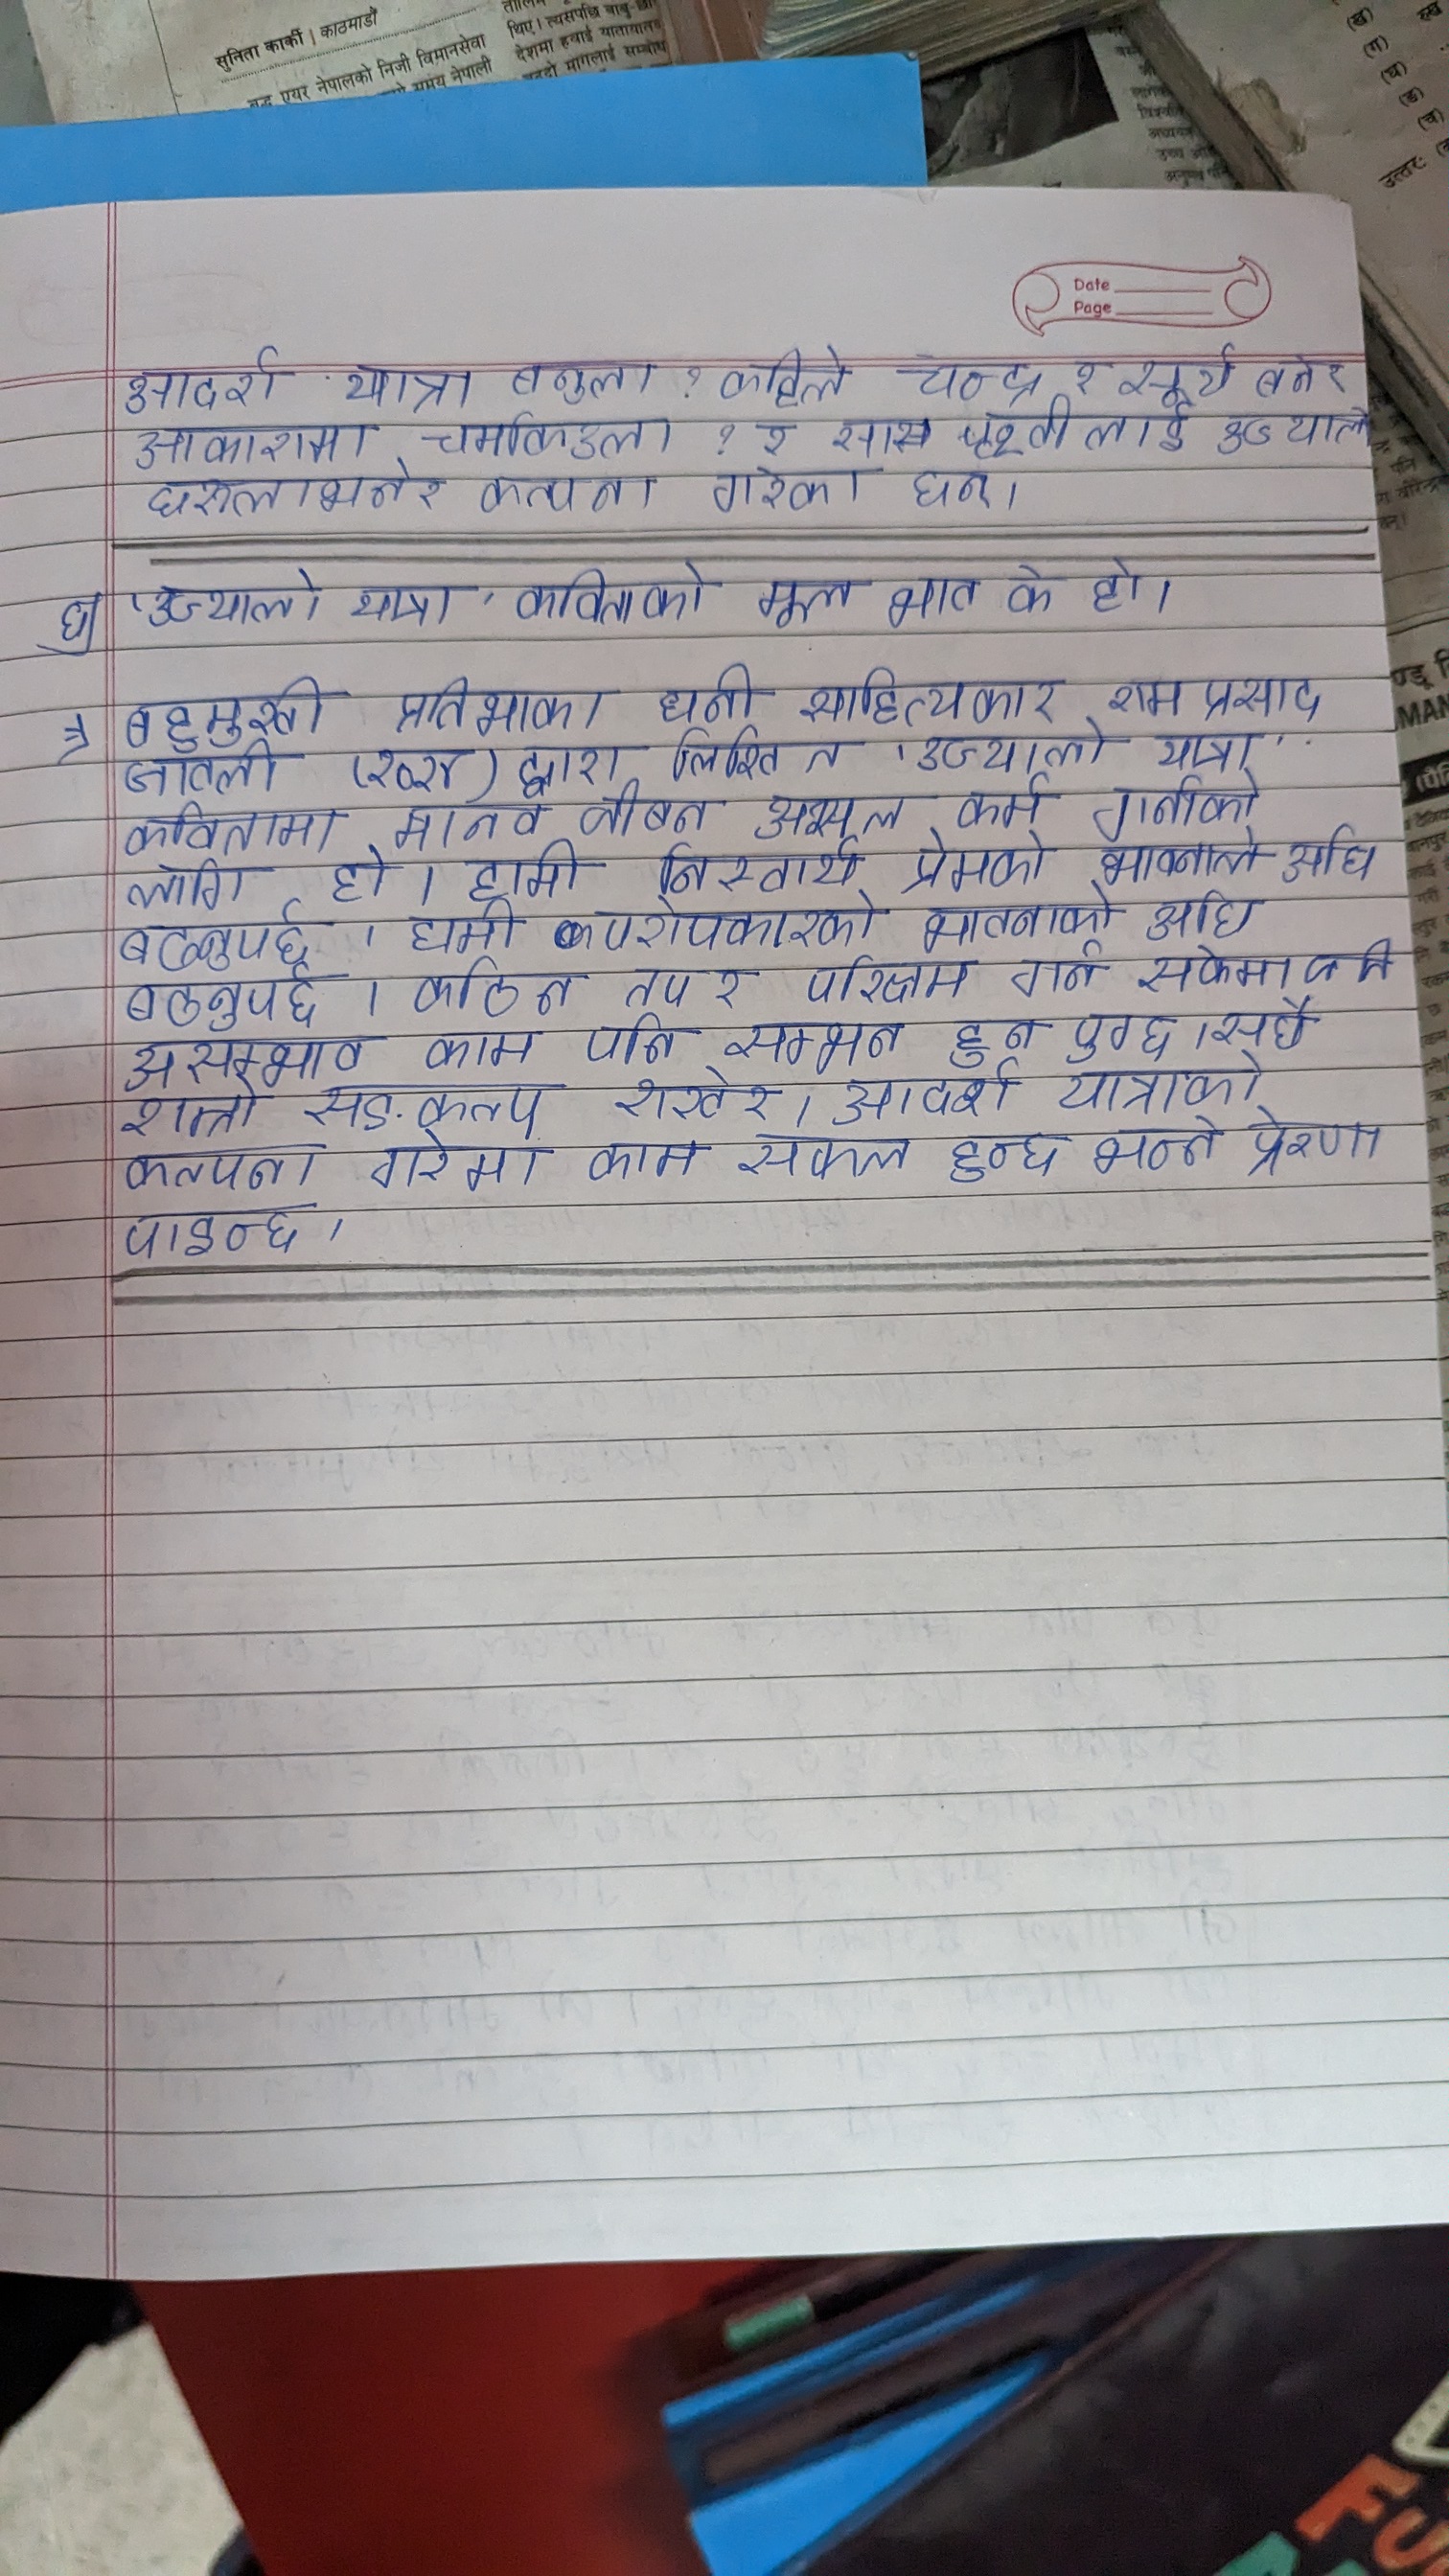 सुनिता कार्की | काठमाडौं
बुद्ध एयर नेपालको निजी विमानसेवा
समय नेपाली
थिए। त्यसपछि
देशमा हवाई यातायातको
बढ्दो मागलाई
Date
Page
आदर्श यात्रा बनुला ? कहिले चन्द्र र सूर्य बनेर
आकाशमा चर्मकिउला ? र सारा पृथ्वीलाई उज्यालो
छरुला भनेर कल्पना गरेका छन्।
घ) 'उज्यालो यात्रा' कविताको मूल भाव के हो।
⇒ बहुमुखी प्रतिभाका धनी साहित्यकार राम प्रसाद
ज्ञवली (२०२४) द्वारा लिखित 'उज्यालो यात्रा'
कवितामा मानव जीबन असल कर्म गर्नाको
लागि हो। हामी निस्वार्थ प्रेमको भावनाले अघि
बढ्नुपर्छ। हामी परोपकारको भावनाको अघि
बढ्नुपर्छ। कठिन तप र परिश्रम गर्न सकेमा
असम्भाव काम पनि सम्भव हुन पुग्छ। सधैं
राम्रो सङ्कल्प राखेर, आदर्श यात्राको
कल्पना गरेमा काम सफल हुन्छ भन्ने प्रेरणा
पाइन्छ।
उत्तरः
(ख)
(ग)
(घ)
(ङ)
(च)
MAN
FU